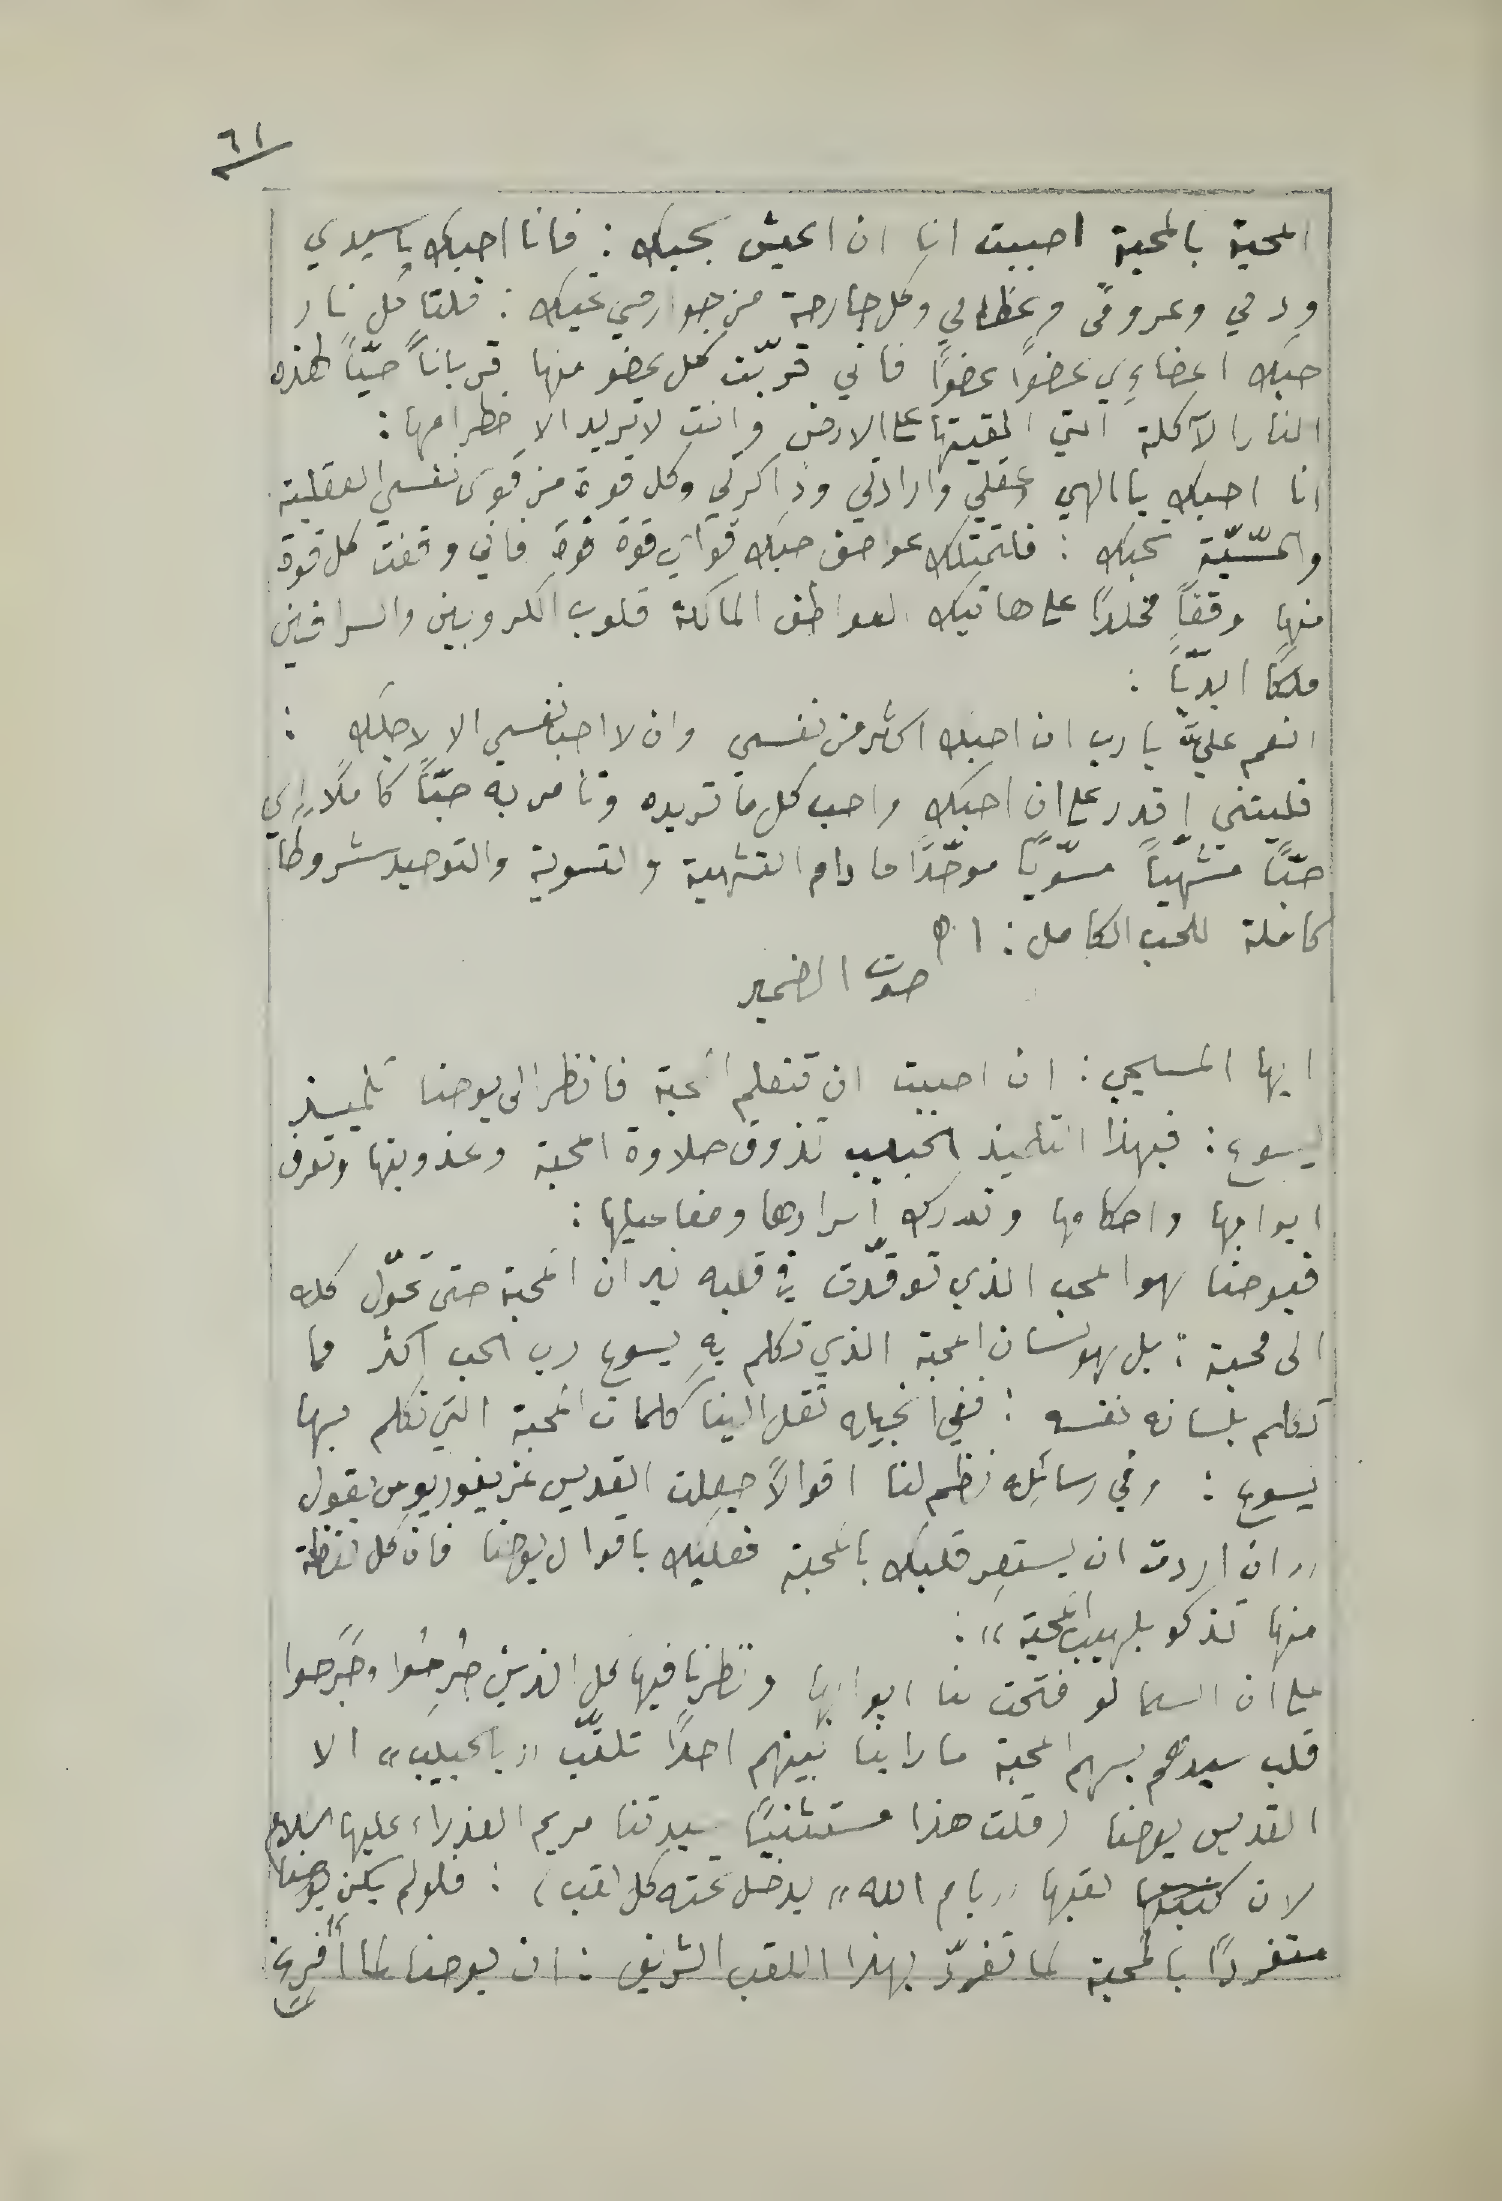 ٦١
المحبة بالمحبة احببت انا ان اعيش بحبك : فانا احبك يا سيدي
ودمي وعروقي وعظامي وكل جارحة من جوارحي تحبك : فلتاكل نار
حبك اعضاءِي عضواً عضواً فاني قربّت كل عضو منها قرباناً حيّاً لهذه
النار الآكلة التي القيتها على الارض وانت لا تريد الا ضطرامها :
انا احبك يا الهي وعقلي وارادتي وذاكرتي وكل قوة من قوى نفسي العقلية
والحسّيّة تحبك : فلتمتلك عواصف حبك قواي قوة قوة فاني وقفت كل قوة
منها وقفاً مخلداً على هاتيك العواطف المالكة قلوب الكروبين والسرافين
ملكاً ابديّاً :
انعم عليَّ يا رب ان احبك اكثر من نفسي وان لا احب نفسي الا لاجلك :
فليتني اقدر على ان احبك واحب كل ما تريده وتامر به حبّاً كاملاً اي
حبّاً مشهّياً مسوّياً موحّداً ما دام التشهية والتسوية والتوحيد شروطاً
كافلة للحب الكامل : اه
صوت الضمير
ايها المسيحي : ان احببت ان تتعلم المحبة فانظر الى يوحنا تلميذ
يسوع : فبهذا التلميذ الحبيب تذوق حلاوة المحبة وعذوبتها وتعرف
ابوابها واحكامها وتدرك اسرارها ومفاعيلها :
فيوحنا هو المحب الذي توقدّت في قلبه نيران المحبة حتى تحوّل كله
الى محبة : بل هو لسان المحبة الذي تكلم به يسوع رب الحب اكثر مما
تكلم بلسانه نفسه : ففي انجيله نقل الينا كلمات المحبة التي تكلم بها
يسوع : وفي رسائله نظم لنا اقوالاً جعلت القديس غريغوريوس يقول
"ان اردت ان يستعر قلبك بالمحبة فعليك باقوال يوحنا فان كل لفظة
منها تذكو بلهيب المحبة" :
على ان السما لو فتحت لنا ابوابها ونظرنا فيها كل الذين جُرِحُوا وجَرَحوا
قلب سيدهم بسهم المحبة ما راينا بينهم احداً تلقّب "بالحبيب" الا
القديس يوحنا (قلت هذا مستثنياً سيدتنا مريم العذراء عليها السلام
لان لقبها "بام الله" يدخل تحته كل لقب) : فلو لم يكن يوحنا
متفرداً بالمحبة لما تفردّ بهذا اللقب الشريف : ان يوحنا لما